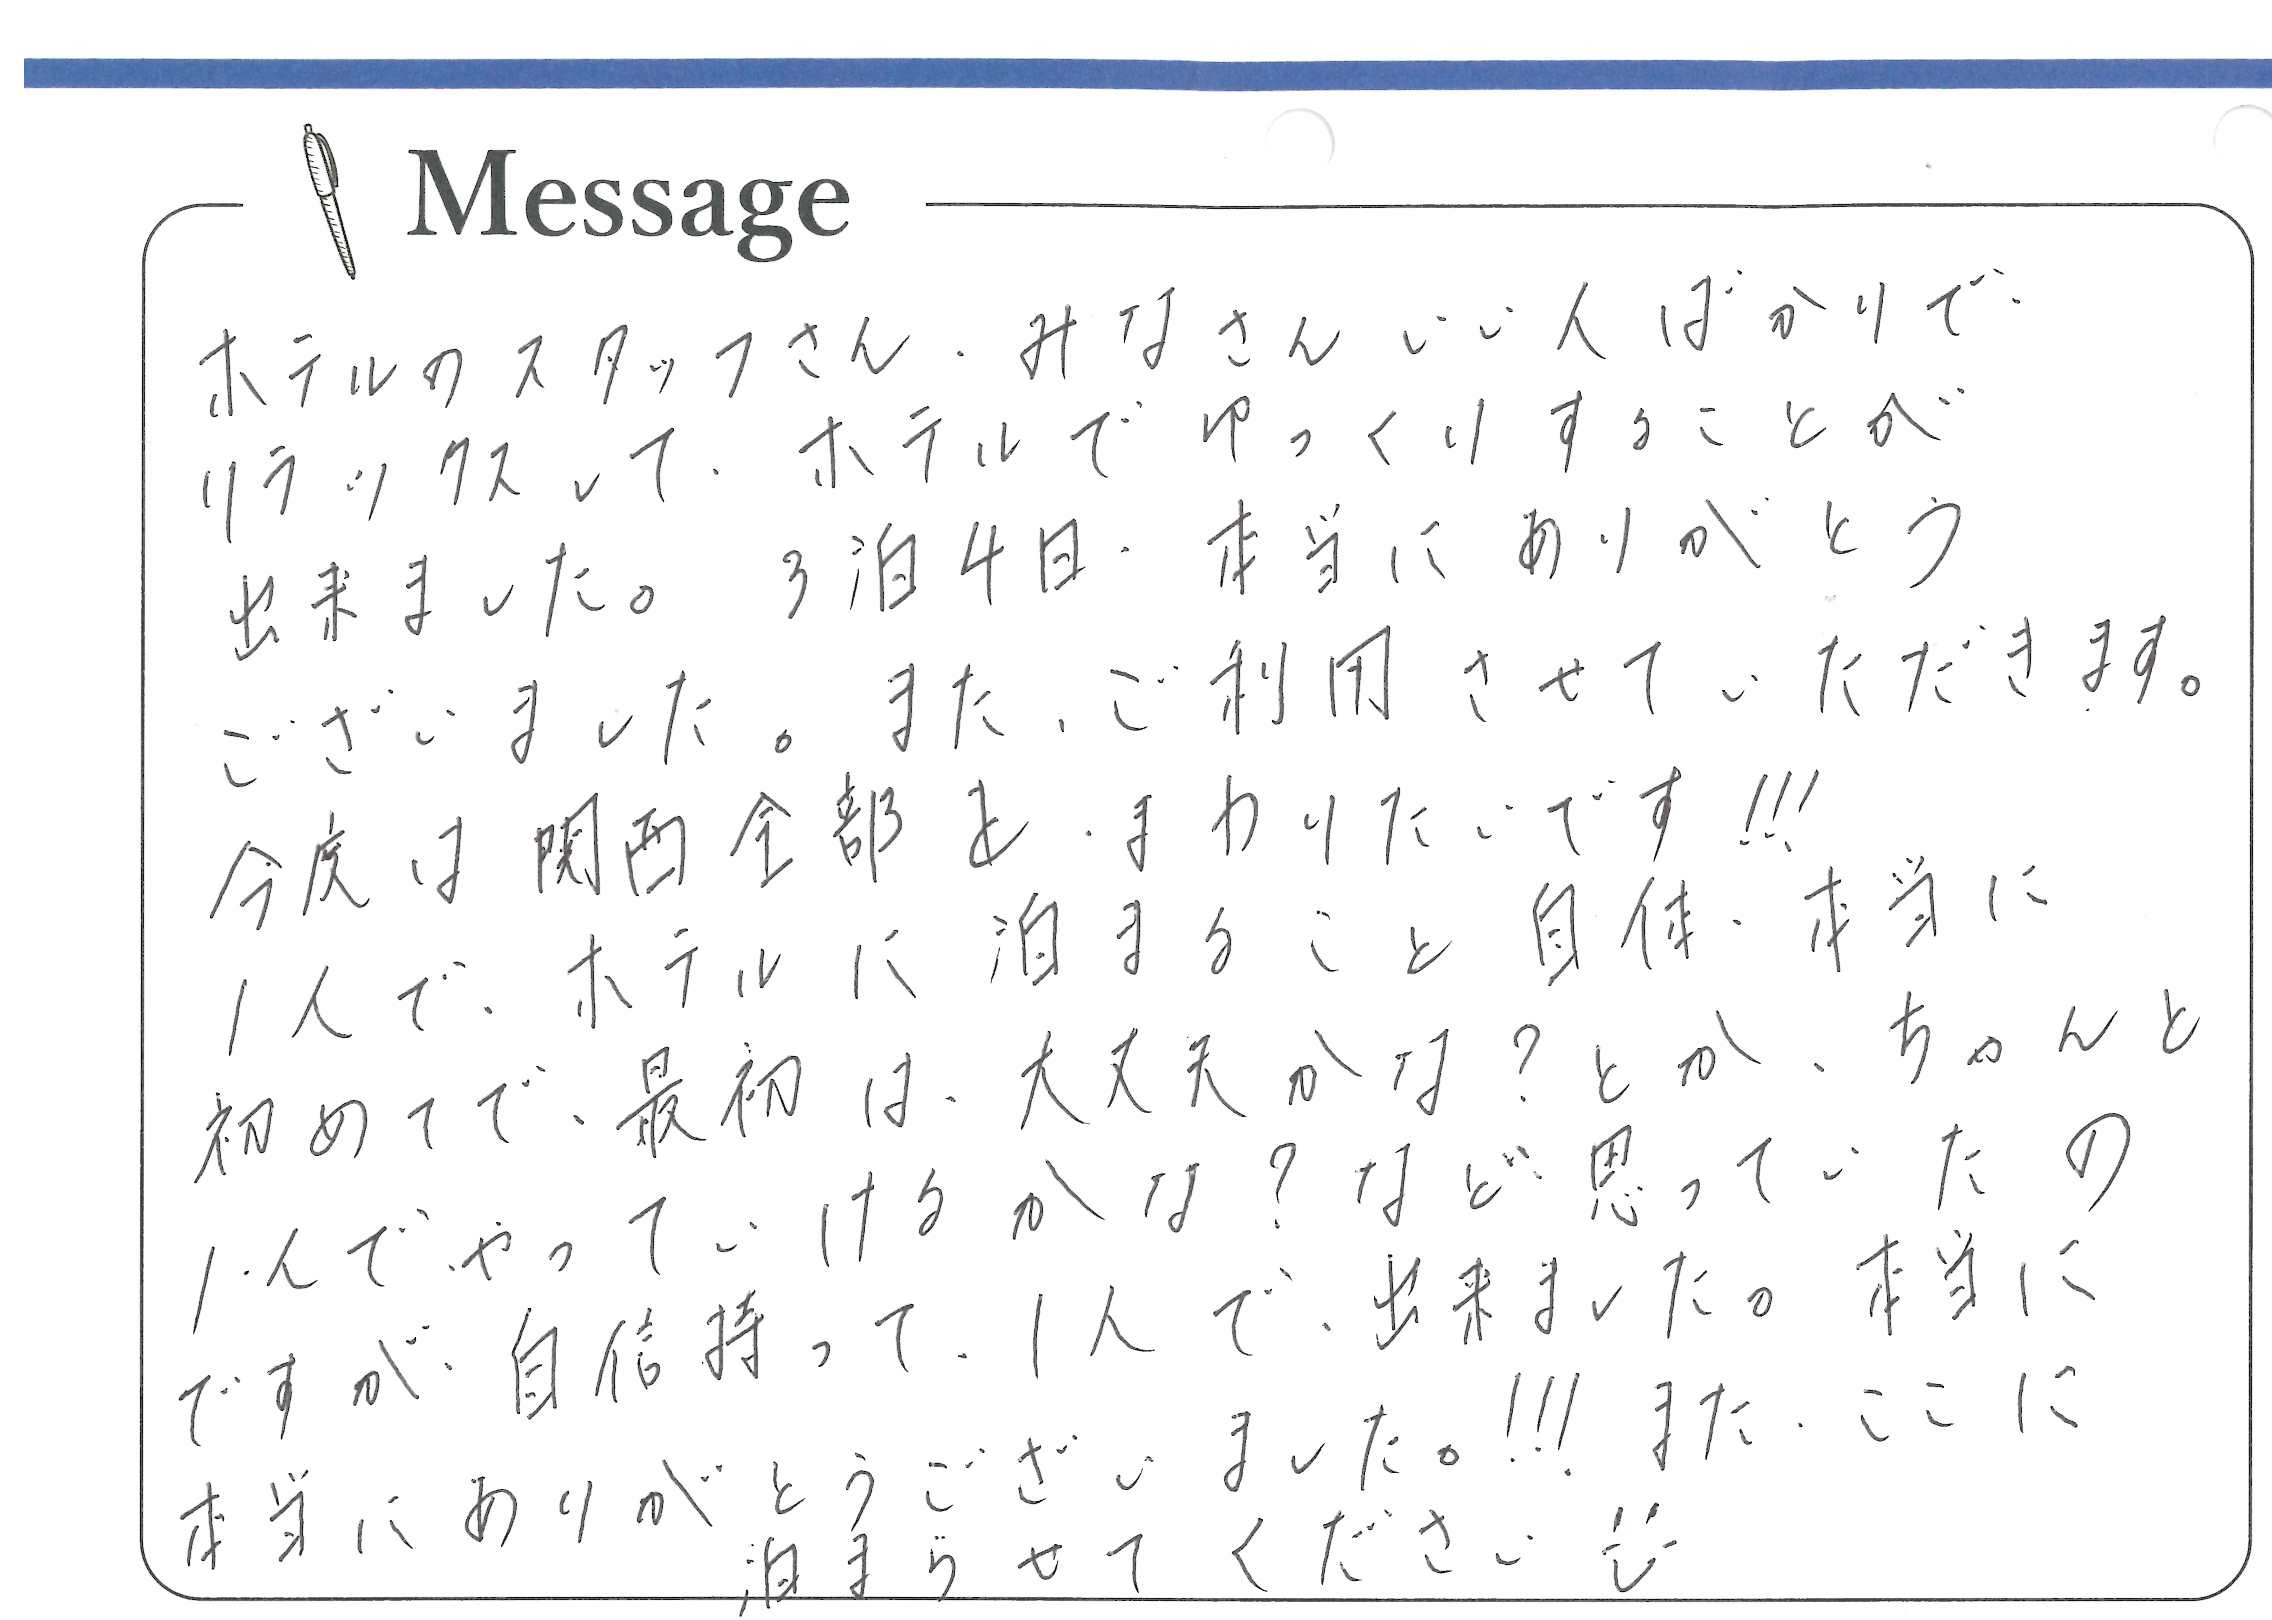 Message
ホテルのスタッフさん、みなさんいい人ばかりで、
リラックスして、ホテルでゆっくりすることが
出来ました。 3泊4日、本当にありがとう
ございました。また、ご利用させていただきます。
今度は関西全部を、まわりたいです!!!
1人で、ホテルに泊まること自体、本当に
初めてで、最初は、大丈夫かな?とか、ちゃんと
1人でやっていけるかな?など思っていたの
ですが、自信持って、1人で、出来ました。本当に
本当にありがとうございました。!!! また、ここに
泊まらせてください